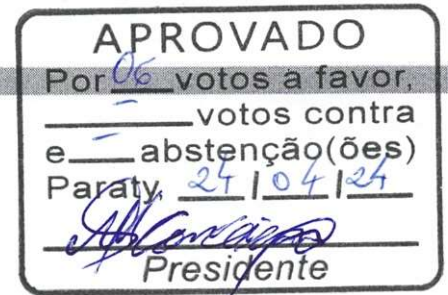 APROVADO
Por 06 votos a favor,
– votos contra
e – abstenção(ões)
Paraty, 24 / 04 / 24
Presidente